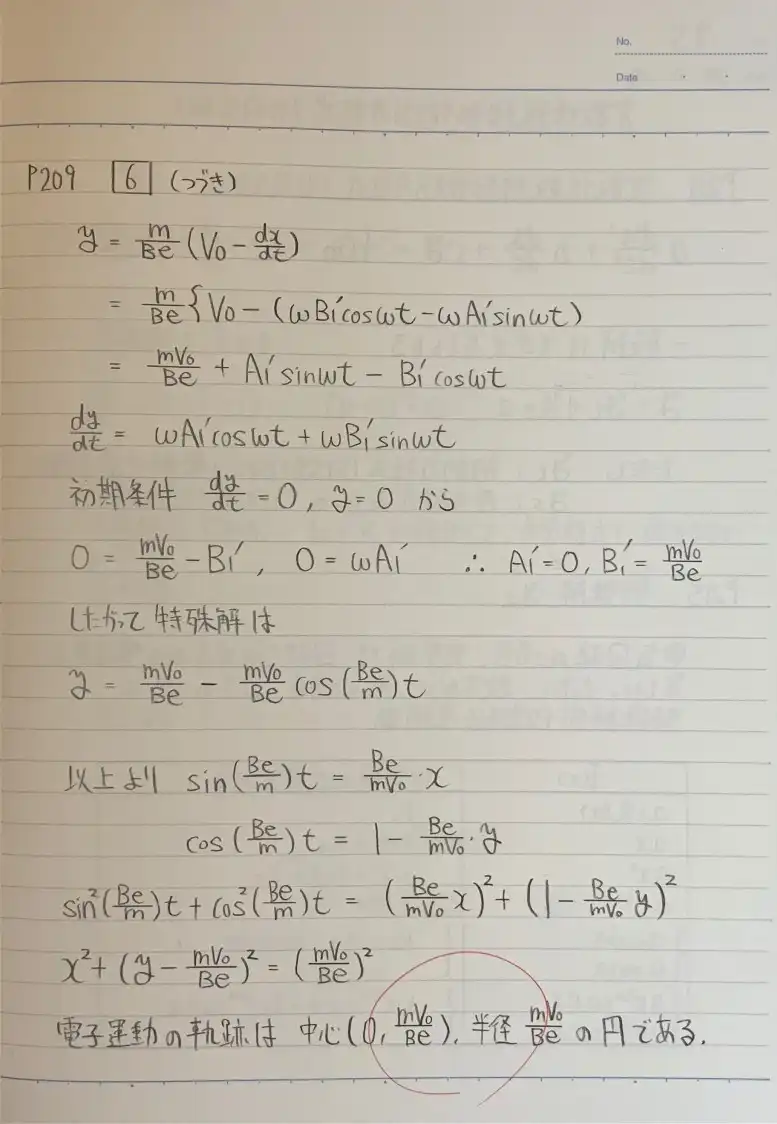 No.
Date
P209 6 (つづき)
y = m/Be (V₀ - dx/dt)
= m/Be { V₀ - (ωB₁'cosωt - ωA₁'sinωt)
= mV₀/Be + A₁'sinωt - B₁'cosωt
dy/dt = ωA₁'cosωt + ωB₁'sinωt
初期条件 dy/dt = 0, y = 0 から
0 = mV₀/Be - B₁', 0 = ωA₁' ∴ A₁' = 0, B₁' = mV₀/Be
したがって特殊解は
y = mV₀/Be - mV₀/Be cos(Be/m)t
以上より sin(Be/m)t = Be/mV₀・x
cos(Be/m)t = 1 - Be/mV₀・y
sin²(Be/m)t + cos²(Be/m)t = (Be/mV₀ x)² + (1 - Be/mV₀ y)²
x² + (y - mV₀/Be)² = (mV₀/Be)²
電子運動の軌跡は 中心(0, mV₀/Be), 半径 mV₀/Be の円である.